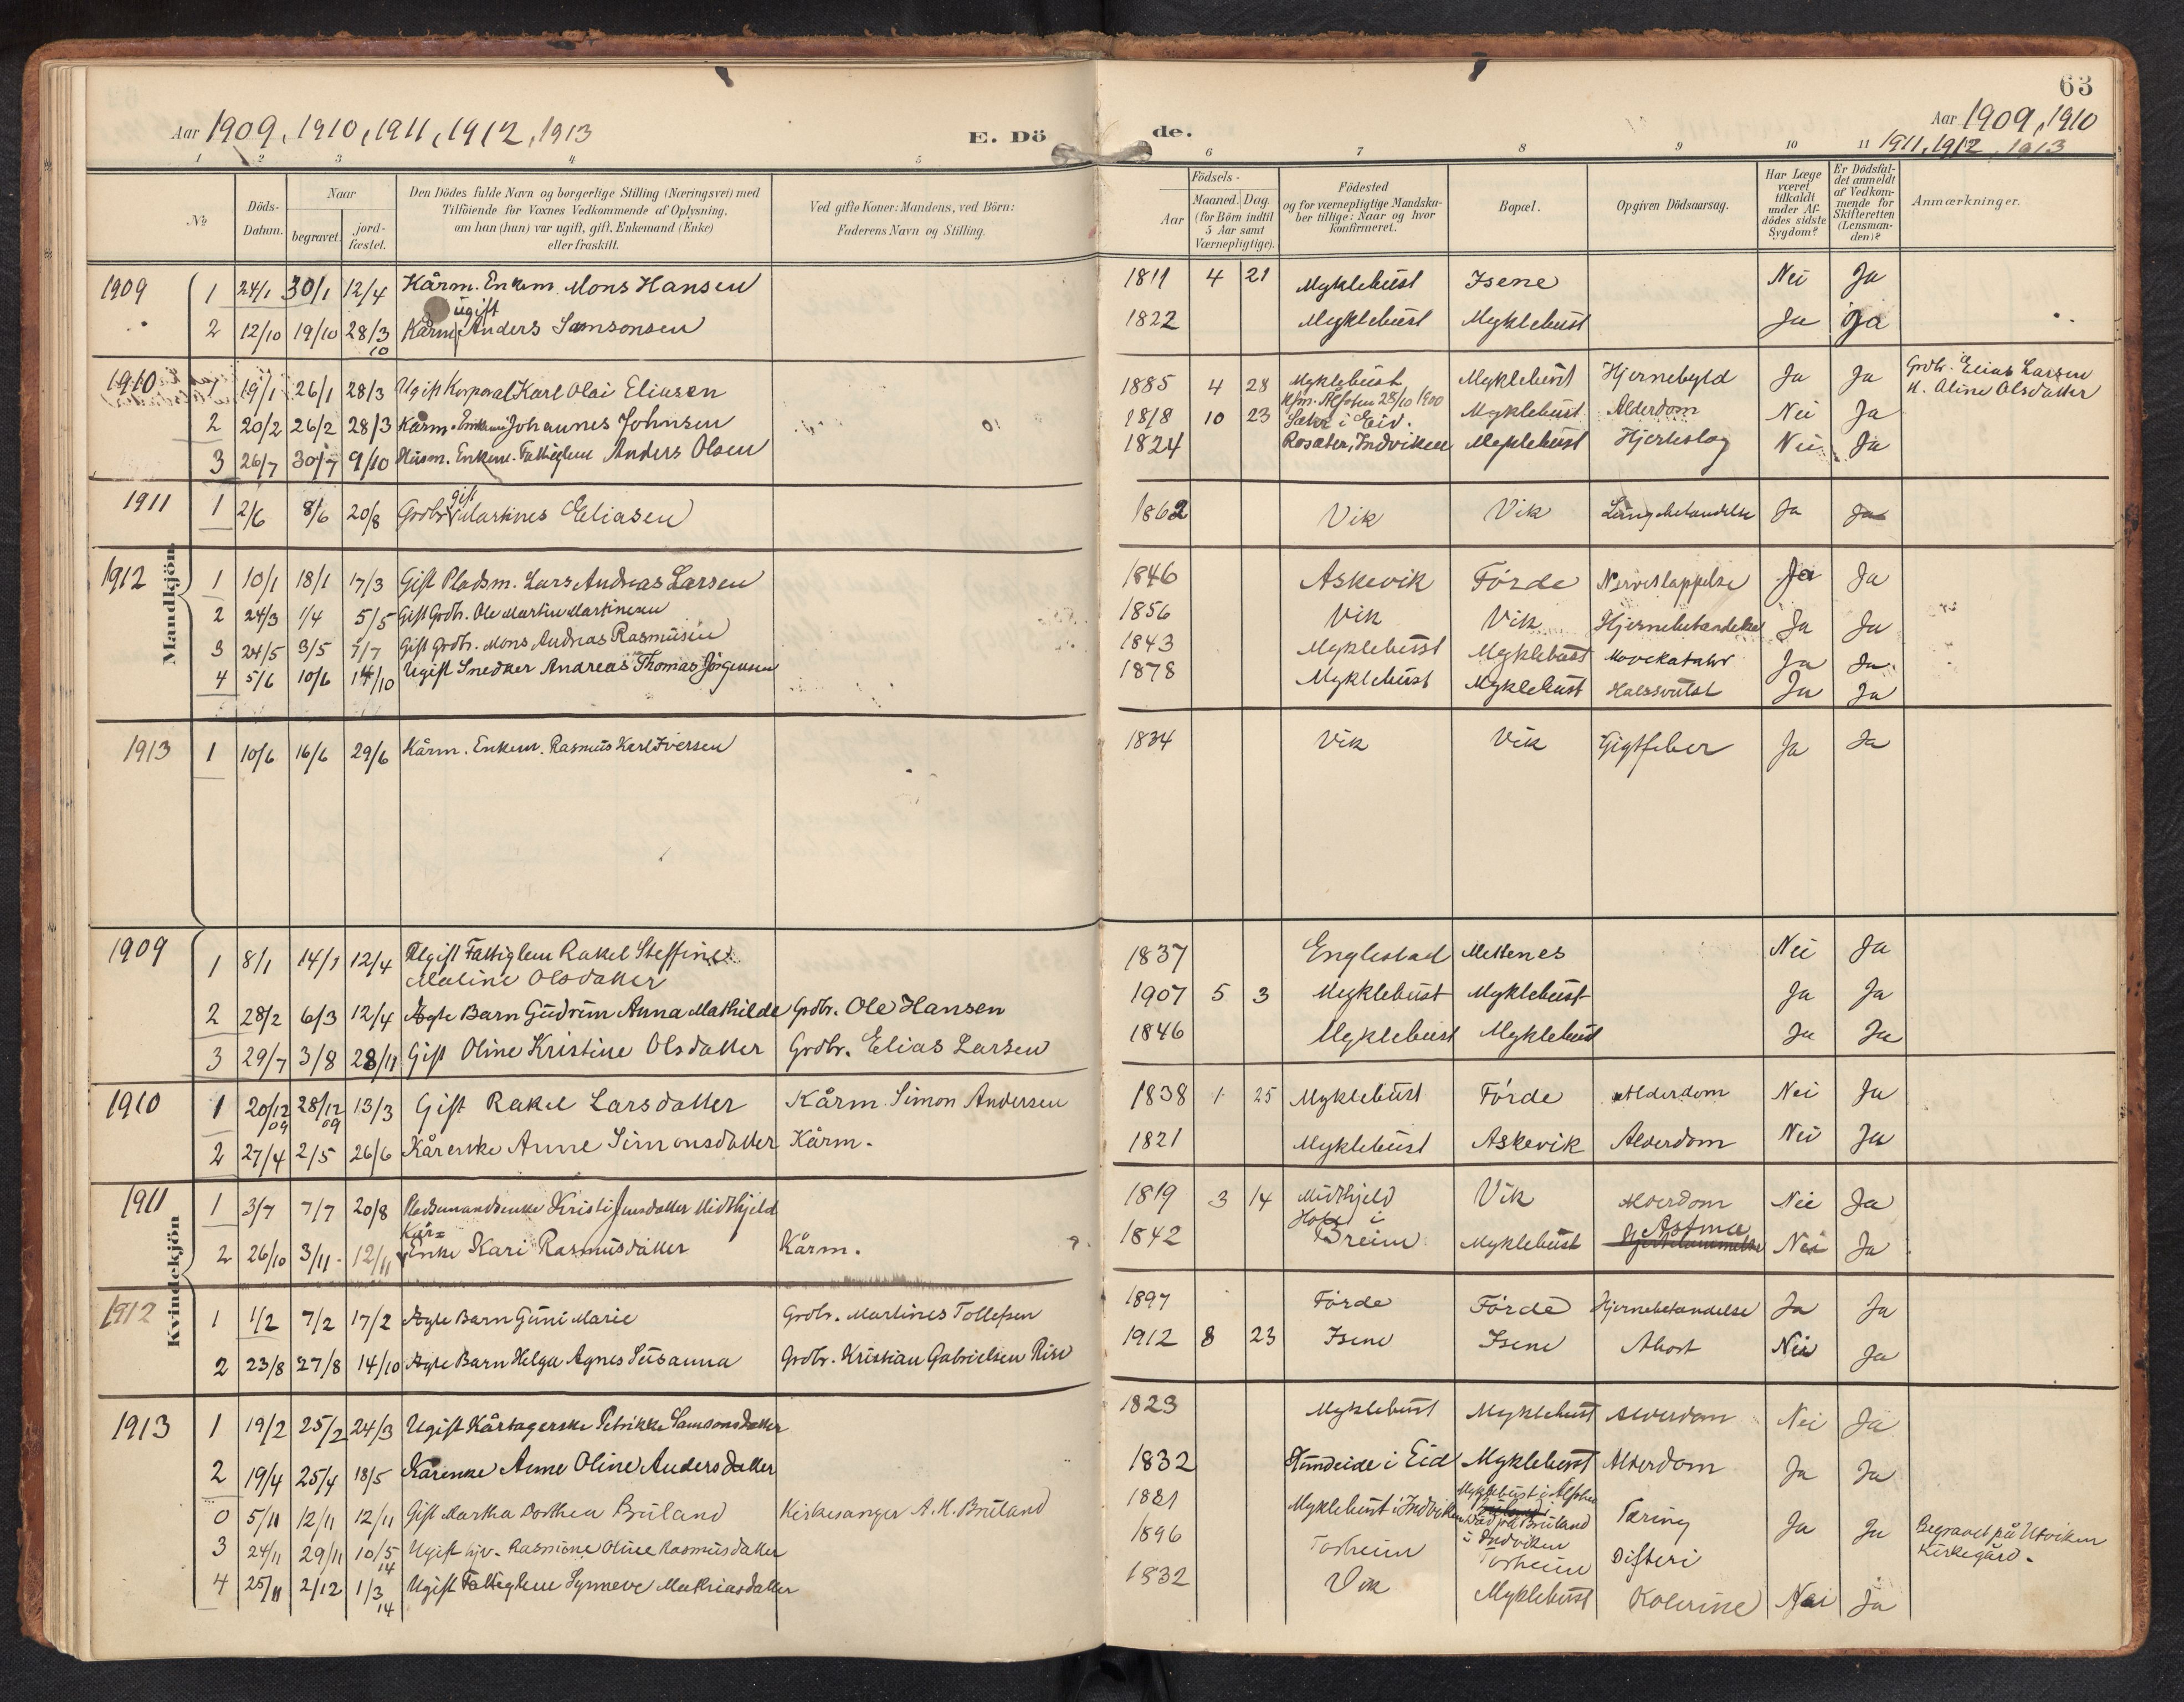 63
Aar 1909, 1910, 1911, 1912, 1913
E. Döde.
Aar 1909, 1910
1911, 1912, 1913
1 2 3 4 5 6 7 8 9 10 11
No.
Döds-Datum.
Naar
begravet.
jordfæstet.
Den Dödes fulde Navn og borgerlige Stilling (Næringsvei) med
Tilföiende for Voxnes Vedkommende af Oplysning,
om han (hun) var ugift, gift, Enkemand (Enke)
eller fraskilt.
Ved gifte Koner: Mandens, ved Börn:
Faderens Navn og Stilling.
Födsels-
Aar
Maaned. Dag.
(for Börn indtil
5 Aar samt
Værnepligtige).
Födested
og for værnepligtige Mandska-
ber tillige: Naar og hvor
konfirmeret.
Bopæl.
Opgiven Dödsaarsag.
Har Læge
været
tilkaldt
under Af-
dödes sidste
Sygdom?
Er Dödsfal-
det anmeldt
af Vedkom-
mende for
Skifteretten
(Lensman-
den)?
Anmærkninger.
Mandkjön
1909 1 24/1 30/1 12/4 Kårm. Enkem. Mons Hansen 1811 4 21 Myklebust Isene Nei Ja
2 12/10 19/10 28/3 10 Kårm. ugift Anders Samsonsen 1822 Myklebust Myklebust Ja Ja
1910 1 19/1 26/1 28/3 Ugift Korporal Karl Olai Eliasen 1885 4 28 Myklebust Kfm. Alfoten 28/10 1900 Myklebust Hjernebyld Ja Ja Grdbr. Elias Larsen
H. Oline Olsdatter
2 20/2 26/2 28/3 Kårm. Enkem. Johannes Johnsen 1818 10 23 i Eid. Myklebust Alderdom Nei Ja
3 26/7 30/7 9/10 Husm. Enkem. Fattiglem Anders Olsen 1824 Indviken Myklebust Hjerteslag Nei Ja
1911 1 2/6 8/6 20/8 Grdbr. gift Martines Eliasen 1862 Vik Vik Lungebetændelse Ja Ja
1912 1 10/1 18/1 17/3 Gift Pladsm. Lars Andreas Larsen 1846 Askevik Förde Nerveslappelse Ja Ja
2 24/3 1/4 5/5 Gift Grdbr. Ole Martin Martinesen 1856 Vik Vik Hjernebetændelse Ja Ja
3 24/5 3/5 7/7 Gift Grdbr. Mons Andreas Rasmusen 1843 Myklebust Myklebust Mavekatahr Ja Ja
4 5/6 10/6 14/10 Ugift Snedker Andreas Thomas Jörgensen 1878 Myklebust Myklebust Halssvulst Ja Ja
1913 1 10/6 16/6 29/6 Kårm. Enkem. Rasmus Karl Iversen 1834 Vik Vik Gigtfeber Ja Ja
Kvindekjön
1909 1 8/1 14/1 12/4 Ugift Fattiglem Rakel Steffine
Maline Olsdatter 1837 Englestad Mettenes Nei Ja
2 28/2 6/3 12/4 Ægte Barn Gudrun Anna Mathilde Grdbr. Ole Hansen 1907 5 3 Myklebust Myklebust Ja Ja
3 29/7 3/8 28/11 Gift Oline Kristine Olsdatter Grdbr. Elias Larsen 1846 Myklebust Myklebust Ja Ja
1910 1 20/12 09 28/12 09 13/3 Gift Rakel Larsdatter Kårm. Simon Andersen 1838 1 25 Myklebust Förde Alderdom Nei Ja
2 27/4 2/5 26/6 Kårenke Anne Simonsdatter Kårm. 1821 Myklebust Askevik Alderdom Nei Ja
1911 1 3/7 7/7 20/8 Pladsmandsenke Kristi Jensdatter Midthjeld 1819 3 14 Midthjeld Vik Alderdom Nei Ja
2 26/10 3/11 12/11 Kår=enke Kari Rasmusdatter Kårm. 1842 i Breim Myklebust Astma Nei Ja
1912 1 1/2 7/2 17/2 Ægte Barn Guni Marie Grdbr. Martines Tollefsen 1897 Förde Förde Hjernebetændelse Ja Ja
2 23/8 27/8 14/10 Ægte Barn Helga Agnes Susanna Grdbr. Kristian Gabrielsen Rise 1912 8 23 Isene Isene Abort Nei Ja
1913 1 19/2 25/2 24/3 Ugift Kårtagerske Petrikke Samsonsdatter 1823 Myklebust Myklebust Alderdom Nei Ja
2 19/4 25/4 18/5 Kårenke Anne Oline Andersdatter 1832 Hundeide i Eid Myklebust Alderdom Ja Ja
0 5/11 12/11 12/11 Gift Martha Dorthea Bruland Kirkesanger A. M. Bruland 1881 Myklebust i Indviken Myklebust i Alfoten
Bruland
i Indviken Tæring Ja Ja Begravet på Utviken
Kirkegård.
3 24/11 29/11 10/5 14 Ugift hjv. Rasmine Oline Rasmusdatter 1896 Torheim Torheim Difteri
4 25/11 2/12 1/3 14 Ugift Fattiglem Synneve Mathiasdatter 1832 Vik Myklebust Kolerine Nei Ja